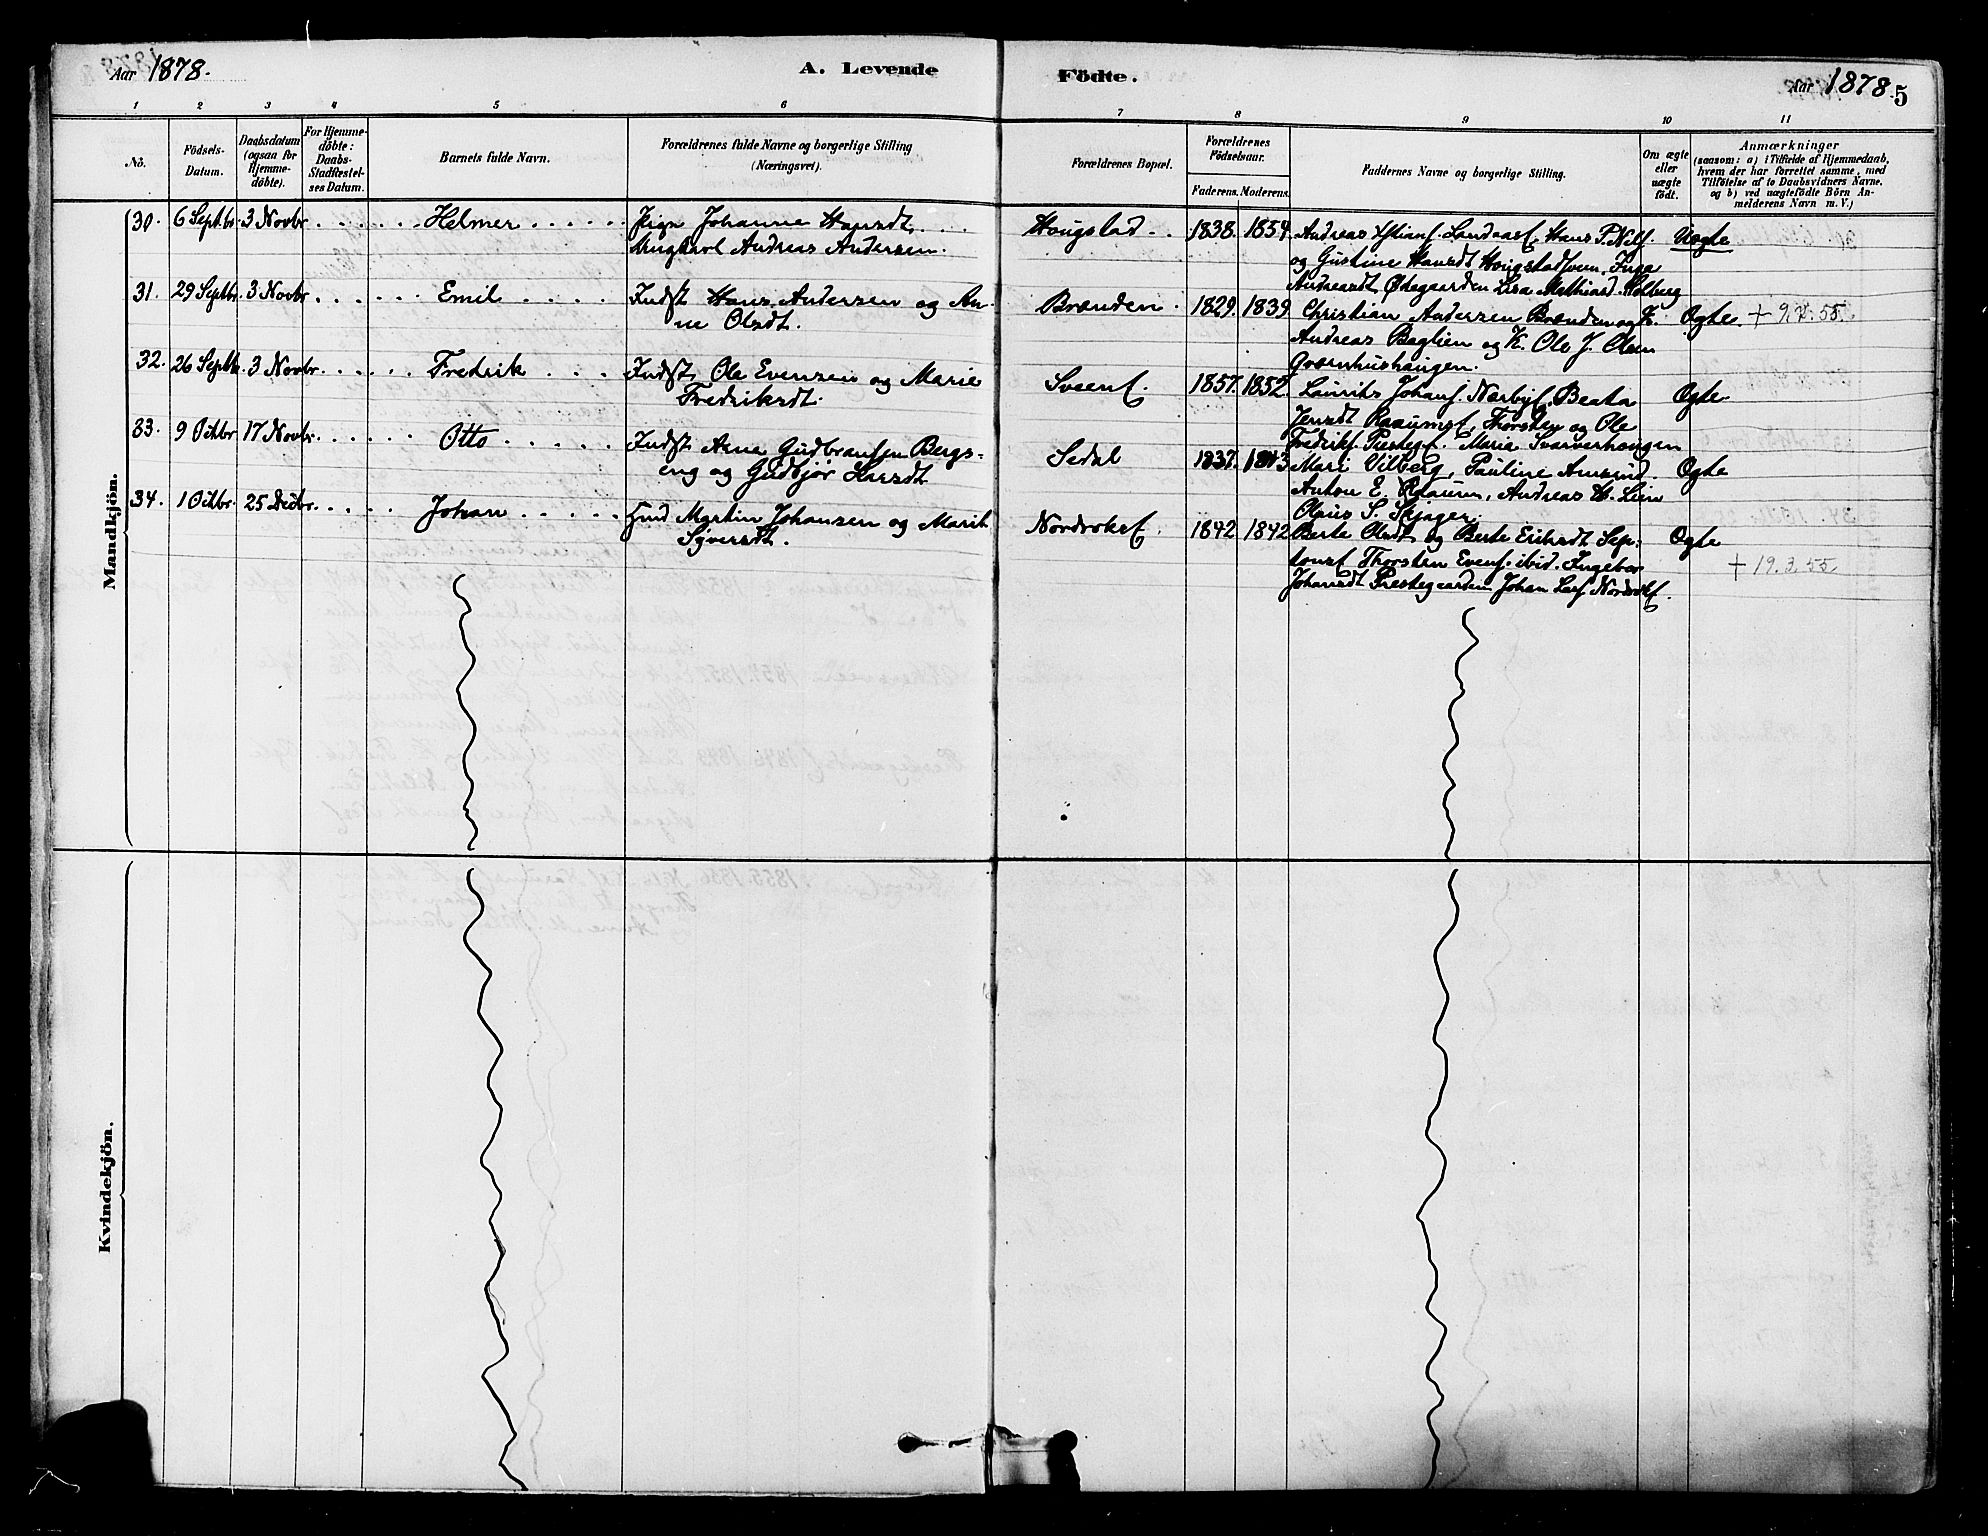 Aar 1878.
A. Levende
Födte.
Aar 1878.
5
1 2 3 4 5 6 7 8 9 10 11
No.
Födsels-
Datum.
Daabsdatum
(ogsaa for
Hjemme-
döbte).
For Hjemme-
döbte:
Daabs-
Stadfæstel-
ses Datum.
Barnets fulde Navn.
Forældrenes fulde Navne og borgerlige Stilling
(Næringsvei).
Forældrenes Bopæl.
Forældrenes
Födselsaar.
Faderens. Moderens.
Faddernes Navne og borgerlige Stilling.
Om ægte
eller
uægte
födt.
Anmærkninger
(saasom: a) i Tilfælde af Hjemmedaab,
hvem der har forrettet samme, med
Tilföielse af to Daabsvidners Navne,
og b) ved uægtefödte Börn An-
melderens Navn m. V.)
Mandkjön.
30. 6 Septbr. 3 Novbr. Helmer Pige Johanne Hansdt.
Ungkarl Andreas Andersen.
Hougstad 1838. 1854. Andreas Landaas, Hans P. Nils. Uægte
og Gustine Hansdt Hougstadsveen, Inga
Andreasdt Ødegaarden Lisa Mathiasd. Kolberg
31. 29 Septbr. 3 Novbr. Emil Indst Hans Andersen og An-
ne Olsdt.
Brænden 1829. 1839. Christian Andersen Brænden og K. Ægte. + 9.
Andreas Baglien og K. Ole J. Olsen
Qværnhushaugen.
32. 26 Septbr. 3 Novbr. Fredrik Indst Ole Evensen og Marie
Fredriksdt.
Sveen 1857. 1852. Laurits Johans. Narby, Beata Ægte.
Jensdt Raaums, Thorsten og Ole
Fredriks. Marie Svarverhaugen
33. 9 Octbr. 17 Novbr. Otto Indst Arne Gudbransen Bergs-
eng og Gudbjør Larsdt
Sedal 1837. 1843 Mari Vilberg, Pauline Amrud. Ægte
Anton E. Raaum, Andreas H. Lien
Olaus S. Skjager.
34. 1 Octbr. 25 Decbr. Johan Hmd Martin Johansen og Marit
Syversdt.
Nordvoks 1842 1842 Berte Olsdt og Berte Eriksdt
Thorsten Evens. ibid. Ingebor Ægte
+ 19.3.55
Johansdt Prestegaarden Johan Lars Nordvoks.
Kvindekjön.